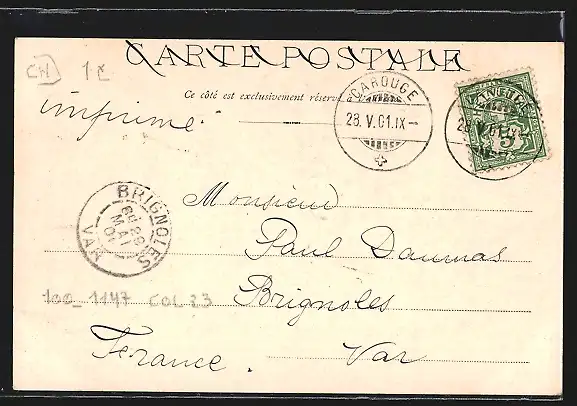 CARTE POSTALE
CH 1C
Ce côté est exclusivement réservé à
imprimé
CAROUGE
28.V.01.IX
5
BRIGNOLES
29
MAI
01
VAR
Monsieur
Paul Daumas
100_1147 COL 23
Brignoles
France. Var